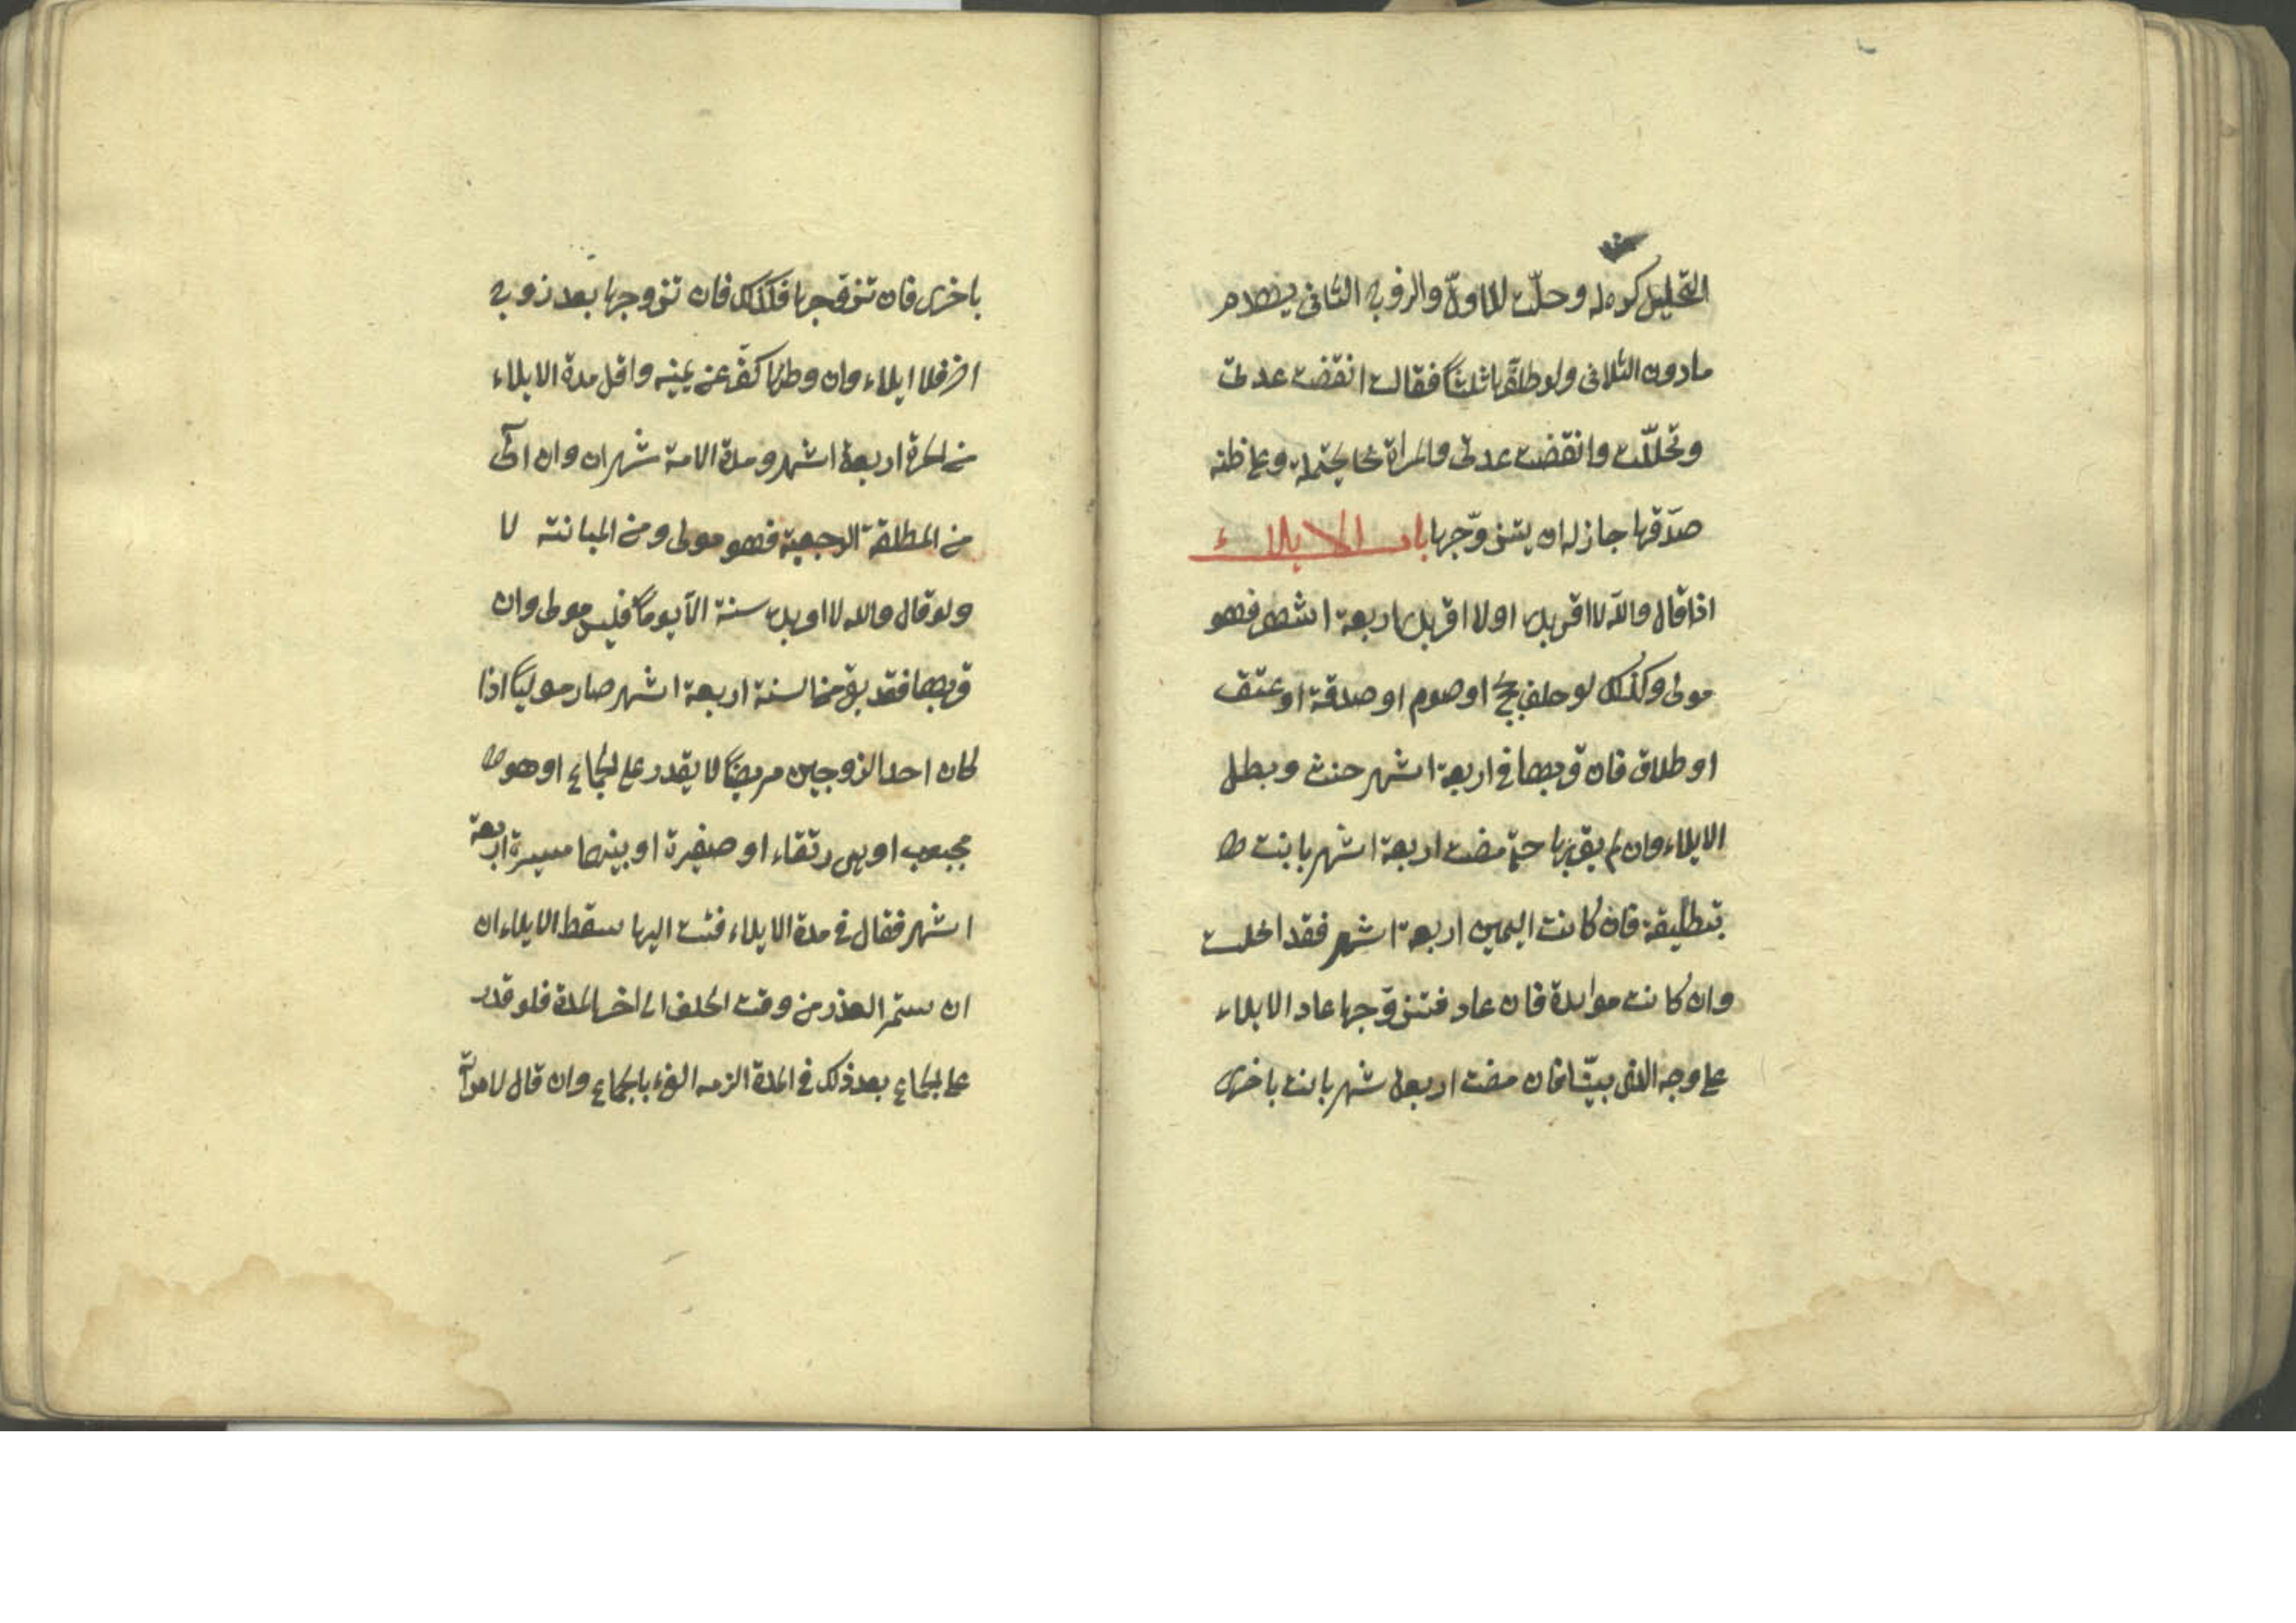 التحليل كره له وحلّت للاول والزوج الثانى يهدم
مادون الثلاث ولو طلقها ثلثاً فقالت انقضت عدتى
وتحللت وانقضت عدتى والمراة مما يحتمله وغ ظنه
صدّقها جاز له ان يتزوّجها باب الايلاء
اذا قال والله لا اقربك او لا اقربك اربعة اشهر فهو
مولى وكذلك لو حلف بحج او صوم او صدقة او عتق
او طلاق فان قربها فى اربعة اشهر حنث وبطل
الايلاء وان لم يقربها حتى مضت اربعة اشهر بانت
بتطليقة فان كانت اليمين اربعة اشهر فقد اخلت
وان كانت موابدة فان عاد فتزوّجها عاد الايلاء
على وجه الذى بيّنا فان مضت اربعة شهر بانت باخرى
باخرى فان تزوّجها فكذلك فان تزوجها بعد زوج
اخر فلا ايلاء وان وطئها كفّر عن يمينه واقل مدة الايلاء
من الحرة اربعة اشهر ومدة الامة شهران وان آلى
من المطلقة الرجعية فهو مولى ومن المبانته لا
ولو قال والله لا اقربك سنة الّا يوماً فليس مولى وان
قربها فقد بقى من السنة اربعة اشهر صار موليًا اذا
كان احد الزوجين مريضًا لا يقدر على الجماع او هو
مجبوب او هى رتقاء او صغيرة او بينهما مسيرة اربعة
اشهر فقال فى مدة الايلاء فئت اليها سقط الايلاء ان
ان ستمر العذر من وقت الحلف الى اخر المدة فلو قدر
على الجماع بعد ذلك فى المدة الزمه الفئ بالجماع وان قال لامراته